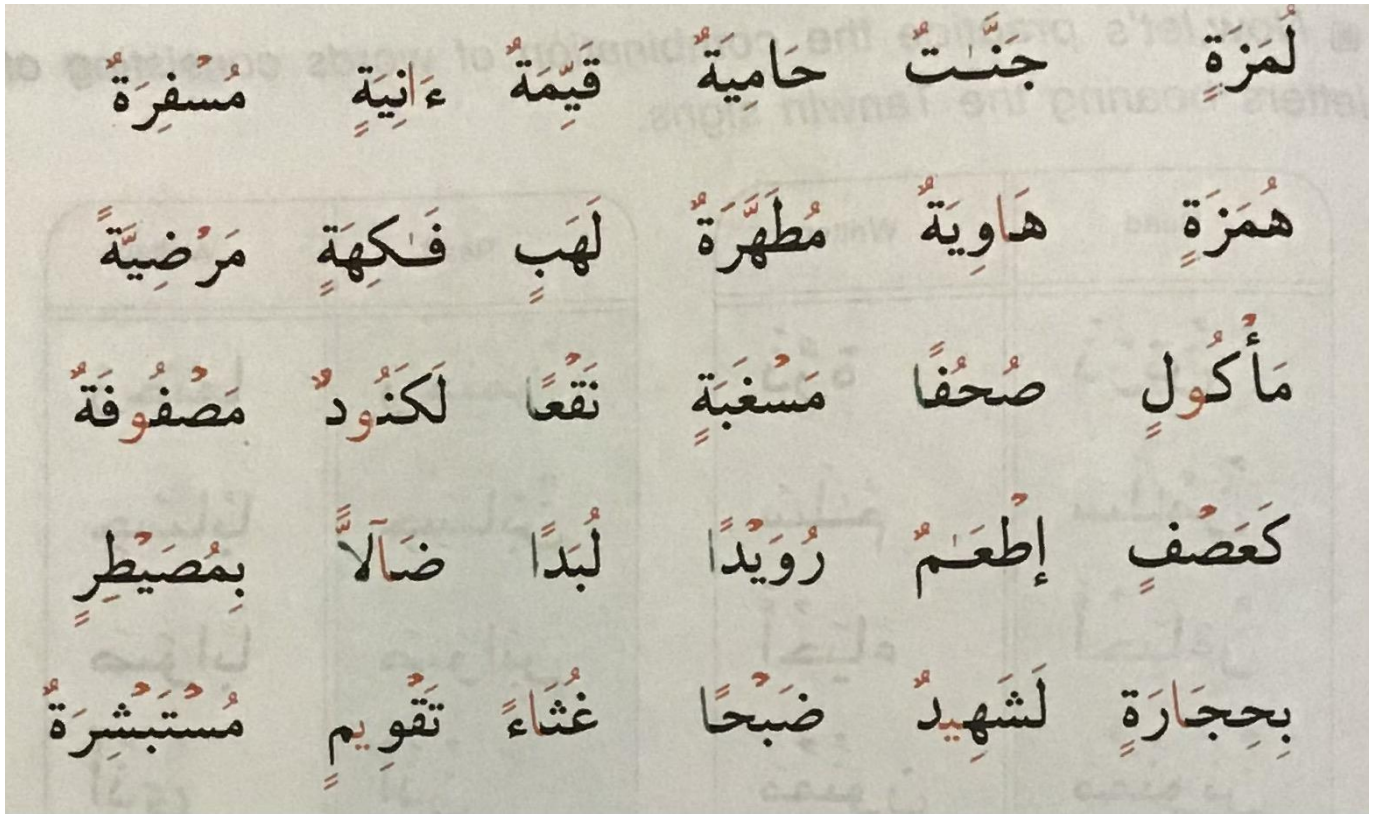 لُمَزَةٍ جَنَّـٰتٌ حَامِيَةٌ قَيِّمَةٌ ءَانِيَةٍ مُسْفِرَةٌ
هُمَزَةٍ هَاوِيَةٌ مُطَهَّرَةٌ لَهَبٍ فَـٰكِهَةٍ مَرْضِيَّةً
مَأْكُولٍ صُحُفًا مَسْغَبَةٍ نَقْعًا لَكَنُودٌ مَصْفُوفَةٌ
كَعَصْفٍ إِطْعَـٰمٌ رُوَيْدًا لُبَدًا ضَآلًّا بِمُصَيْطِرٍ
بِحِجَارَةٍ لَشَهِيدٌ ضَبْحًا غُثَاءً تَقْوِيمٍ مُسْتَبْشِرَةٌ